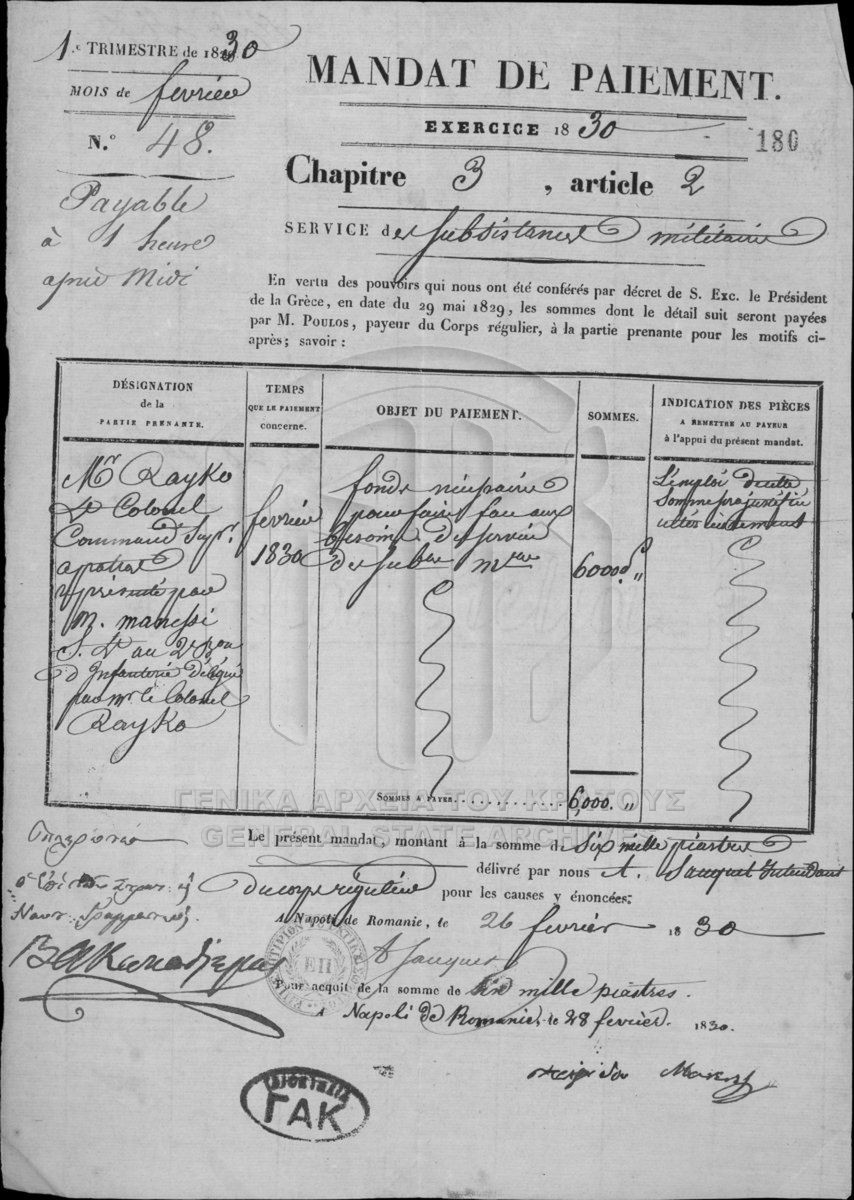 1.e TRIMESTRE de 1830
MOIS de fevrier
N.° 48.
Payable
à 1 heure
aprés Midi
MANDAT DE PAIEMENT.
EXERCICE 1830
180
Chapitre 3, article 2
SERVICE des subsistances militaires
En vertu des pouvoirs qui nous ont été conférés par décret de S. Exc. le Président
de la Grèce, en date du 29 mai 1829, les sommes dont le détail suit seront payées
par M. POULOS, payeur du Corps régulier, à la partie prenante pour les motifs ci-
après; savoir :
DÉSIGNATION
de la
PARTIE PRENANTE.
TEMPS
QUE LE PAIEMENT
concerne.
OBJET DU PAIEMENT.
SOMMES.
INDICATION DES PIÈCES
A REMETTRE AU PAYEUR
à l'appui du présent mandat.
Mr Rayko
Lt Colonel
Command.t Supr.
a patras
représenté par
M. manessi
S. Lt au 2e Bon
d'Infanterie Délégué
par mr le Colonel
Rayko
fevrier
1830
fonds nécessaire
pour faire face aux
besoins du service
des subces mres
6000 "
L'emploi de cette
somme sera justifié
ultérieurement
SOMMES A PAYER............ 6,000. "
ΓΕΝΙΚΑ ΑΡΧΕΙΑ ΤΟΥ ΚΡΑΤΟΥΣ
GENERAL STATE ARCHIVES
Le présent mandat, montant à la somme de Six mille piastres
délivré par nous A. Sauquet Intendant
du corps régulier pour les causes y énoncées;
A Napoli de Romanie, le 26 fevrier 1830
A Sauquet
Pour acquit de la somme de Six mille piastres.
A Napoli de Romanie, le 28 fevrier 1830.
ὁ ἐπὶ τῶν Στρατ. ϗ
Ναυτ. Γραμματεὺς
ΕΠ
ΓΑΚ